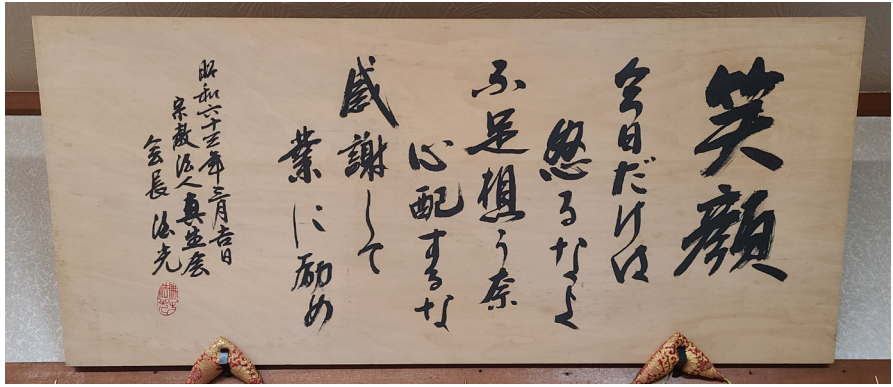 笑顔
今日だけは
怒るなよ
不足想う奈
心配するな
感謝して
業に励め
昭和六十三年三月吉日
宗教法人真生会
会長 法光